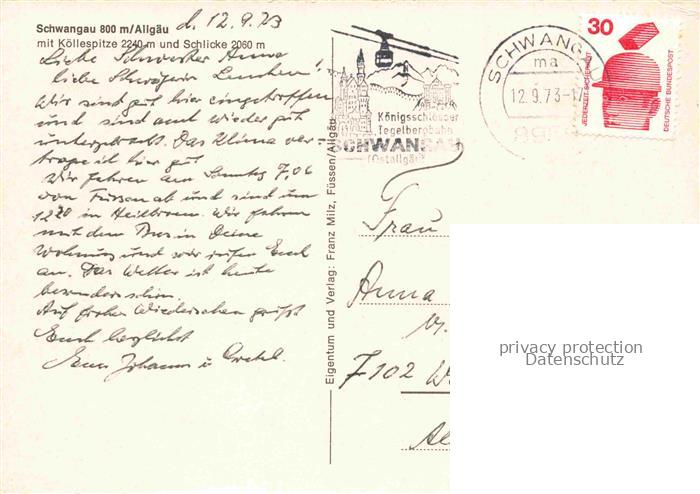 Schwangau 800 m/Allgäu
mit Köllespitze 2240 m und Schlicke 2060 m
d. 12.9.73
Liebe Schwester Anna
liebe Schwägerin
Wir sind gut hier eingetroffen
und sind auch wieder gut
untergebracht. Das Klima ver-
trage ich hier gut
Wir fahren am Sonntag 7,06
von Füssen ab und sind um
12 20 in Heilbronn. Wir fahren
mit dem Bus in Deine
Wohnung und wir rufen Euch
an. Das Wetter ist heute
besonders schön.
Auf frohes Wiedersehen grüßt
Euch herzlichst
Euer Johann u. Gretel.
Eigentum und Verlag: Franz Milz, Füssen/Allgäu
Königsschlösser
Tegelbergbahn
SCHWANGAU
(Ostallgäu)
SCHWANGAU
ma
12.9.73-17
8959
30
JEDERZEIT SICHERHEIT
DEUTSCHE BUNDESPOST
Frau
Anna
7102 W
privacy protection
Datenschutz